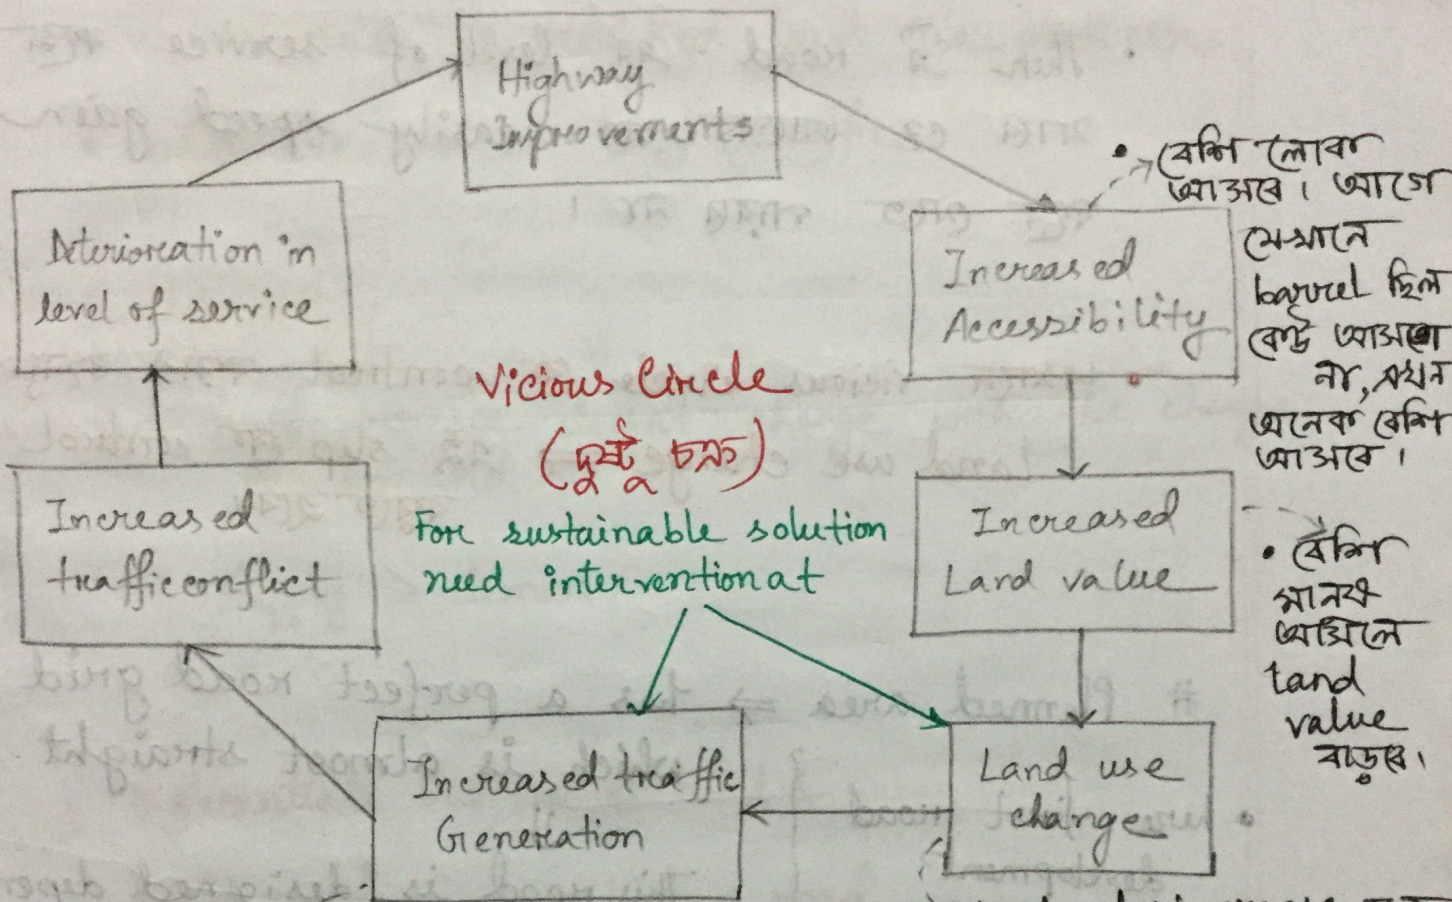 Highway
Improvements
Increased
Accessibility
Increased
Land value
Land use
change
Increased traffic
Generation
Increased
traffic conflict
Deterioration in
level of service
Vicious Circle
(দুষ্টু চক্র)
For sustainable solution
need intervention at
• বেশি লোক
আসবে। আগে
যেখানে
ছিল
কেউ আসতো
না, এখন
অনেক বেশি
আসবে।
• বেশি
মানুষ
আসিলে
land
value
বাড়বে।